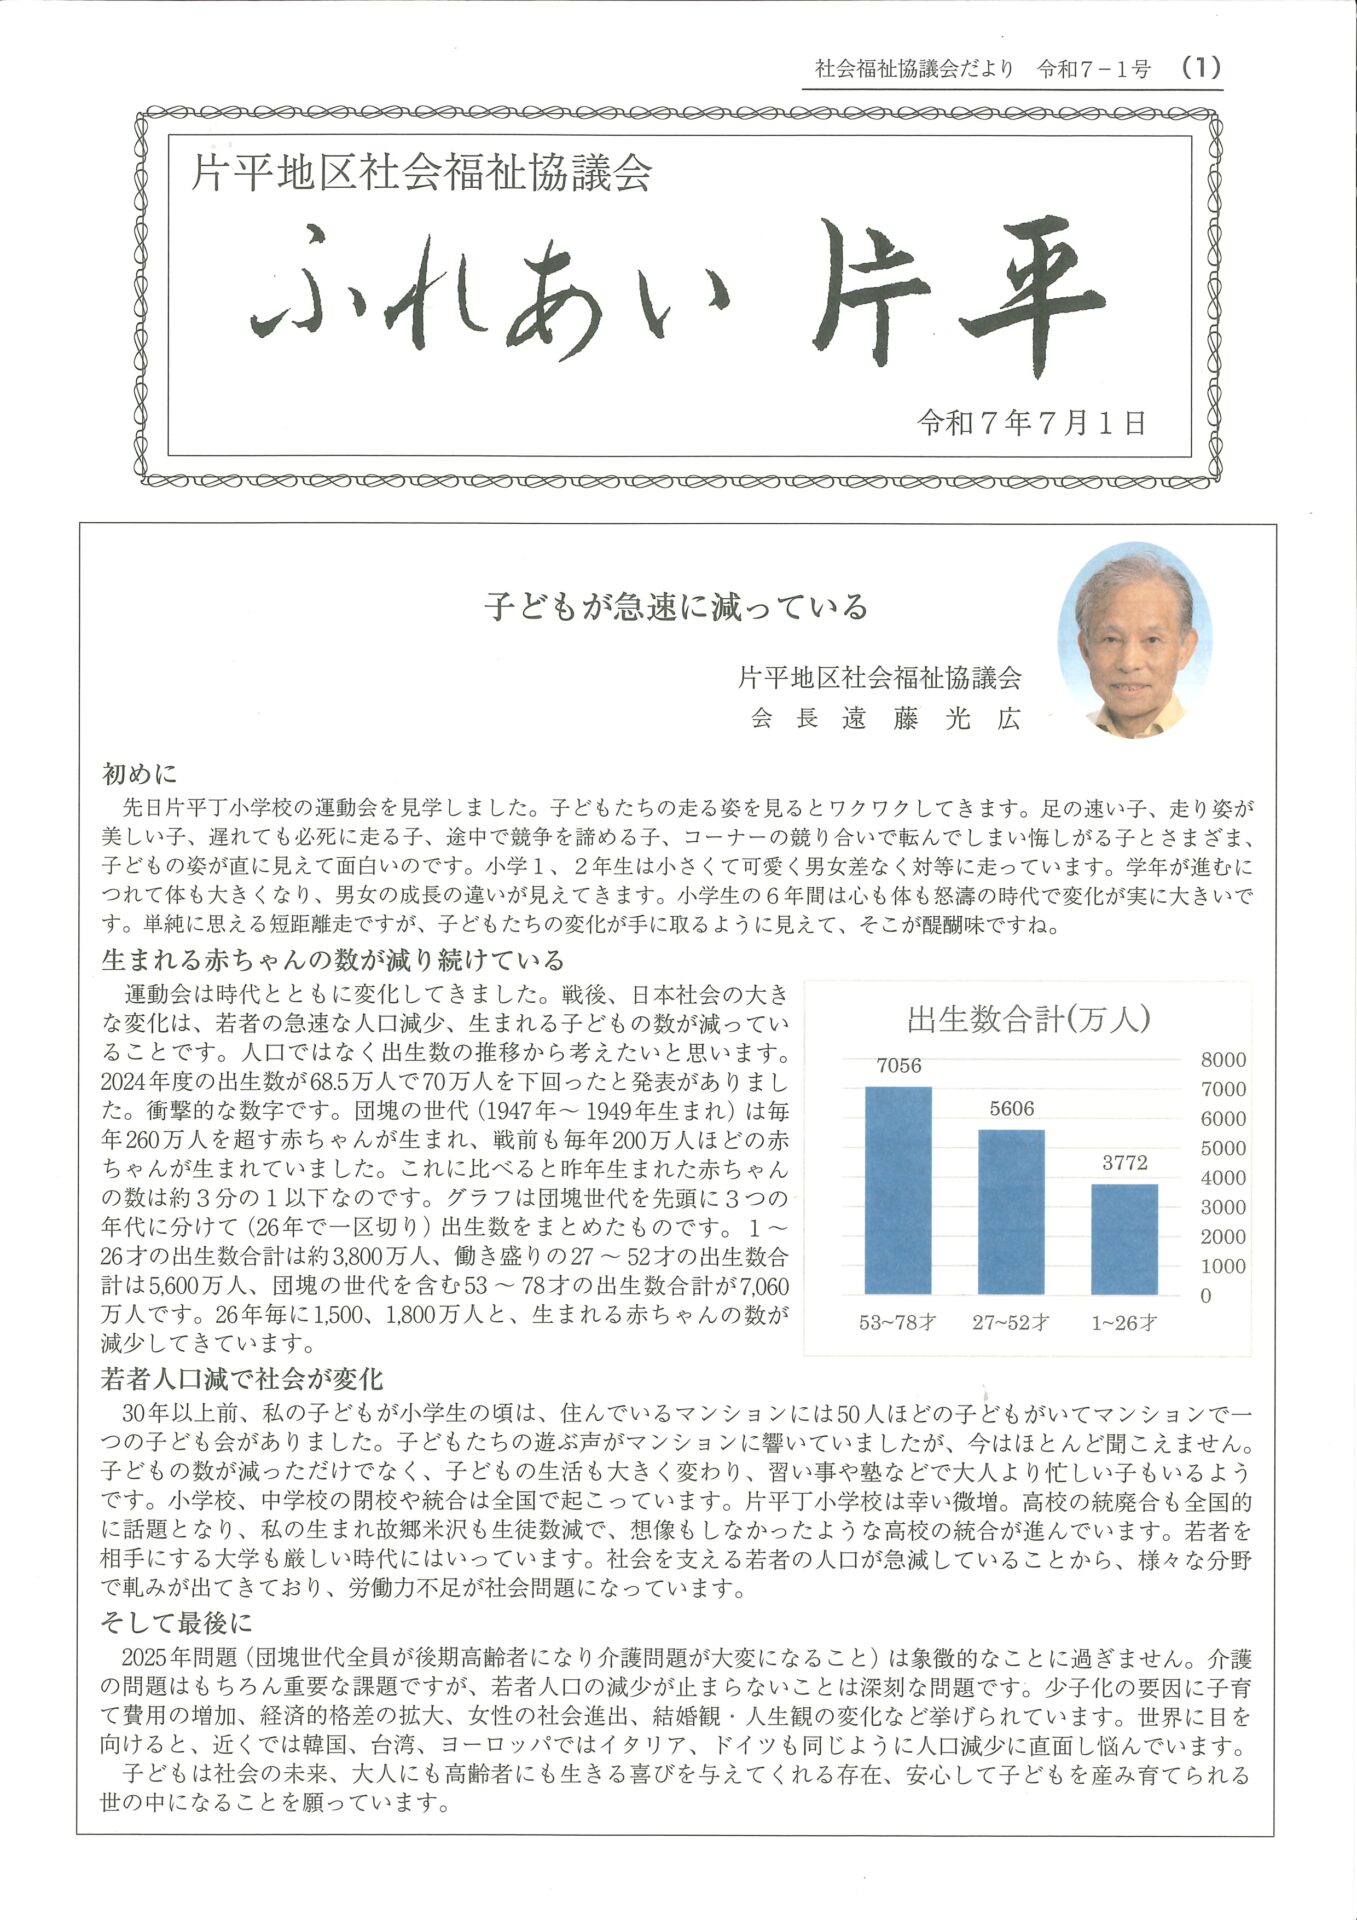 社会福祉協議会だより　令和７－１号　（1）
片平地区社会福祉協議会
ふれあい 片平
令和７年７月１日
子どもが急速に減っている
片平地区社会福祉協議会
会　長　遠　藤　光　広
初めに
　先日片平丁小学校の運動会を見学しました。子どもたちの走る姿を見るとワクワクしてきます。足の速い子、走り姿が
美しい子、遅れても必死に走る子、途中で競争を諦める子、コーナーの競り合いで転んでしまい悔しがる子とさまざま、
子どもの姿が直に見えて面白いのです。小学１、２年生は小さくて可愛く男女差なく対等に走っています。学年が進むに
つれて体も大きくなり、男女の成長の違いが見えてきます。小学生の６年間は心も体も怒濤の時代で変化が実に大きいで
す。単純に思える短距離走ですが、子どもたちの変化が手に取るように見えて、そこが醍醐味ですね。
生まれる赤ちゃんの数が減り続けている
　運動会は時代とともに変化してきました。戦後、日本社会の大き
な変化は、若者の急速な人口減少、生まれる子どもの数が減ってい
ることです。人口ではなく出生数の推移から考えたいと思います。
2024年度の出生数が68.5万人で70万人を下回ったと発表がありまし
た。衝撃的な数字です。団塊の世代（1947年～1949年生まれ）は毎
年260万人を超す赤ちゃんが生まれ、戦前も毎年200万人ほどの赤
ちゃんが生まれていました。これに比べると昨年生まれた赤ちゃん
の数は約３分の１以下なのです。グラフは団塊世代を先頭に３つの
年代に分けて（26年で一区切り）出生数をまとめたものです。１～
26才の出生数合計は約3,800万人、働き盛りの27～52才の出生数合
計は5,600万人、団塊の世代を含む53～78才の出生数合計が7,060
万人です。26年毎に1,500、1,800万人と、生まれる赤ちゃんの数が
減少してきています。
出生数合計(万人)
7056
5606
3772
8000
7000
6000
5000
4000
3000
2000
1000
0
53~78才
27~52才
1~26才
若者人口減で社会が変化
　30年以上前、私の子どもが小学生の頃は、住んでいるマンションには50人ほどの子どもがいてマンションで一
つの子ども会がありました。子どもたちの遊ぶ声がマンションに響いていましたが、今はほとんど聞こえません。
子どもの数が減っただけでなく、子どもの生活も大きく変わり、習い事や塾などで大人より忙しい子もいるよう
です。小学校、中学校の閉校や統合は全国で起こっています。片平丁小学校は幸い微増。高校の統廃合も全国的
に話題となり、私の生まれ故郷米沢も生徒数減で、想像もしなかったような高校の統合が進んでいます。若者を
相手にする大学も厳しい時代にはいっています。社会を支える若者の人口が急減していることから、様々な分野
で軋みが出てきており、労働力不足が社会問題になっています。
そして最後に
　2025年問題（団塊世代全員が後期高齢者になり介護問題が大変になること）は象徴的なことに過ぎません。介護
の問題はもちろん重要な課題ですが、若者人口の減少が止まらないことは深刻な問題です。少子化の要因に子育
て費用の増加、経済的格差の拡大、女性の社会進出、結婚観・人生観の変化など挙げられています。世界に目を
向けると、近くでは韓国、台湾、ヨーロッパではイタリア、ドイツも同じように人口減少に直面し悩んでいます。
　子どもは社会の未来、大人にも高齢者にも生きる喜びを与えてくれる存在、安心して子どもを産み育てられる
世の中になることを願っています。